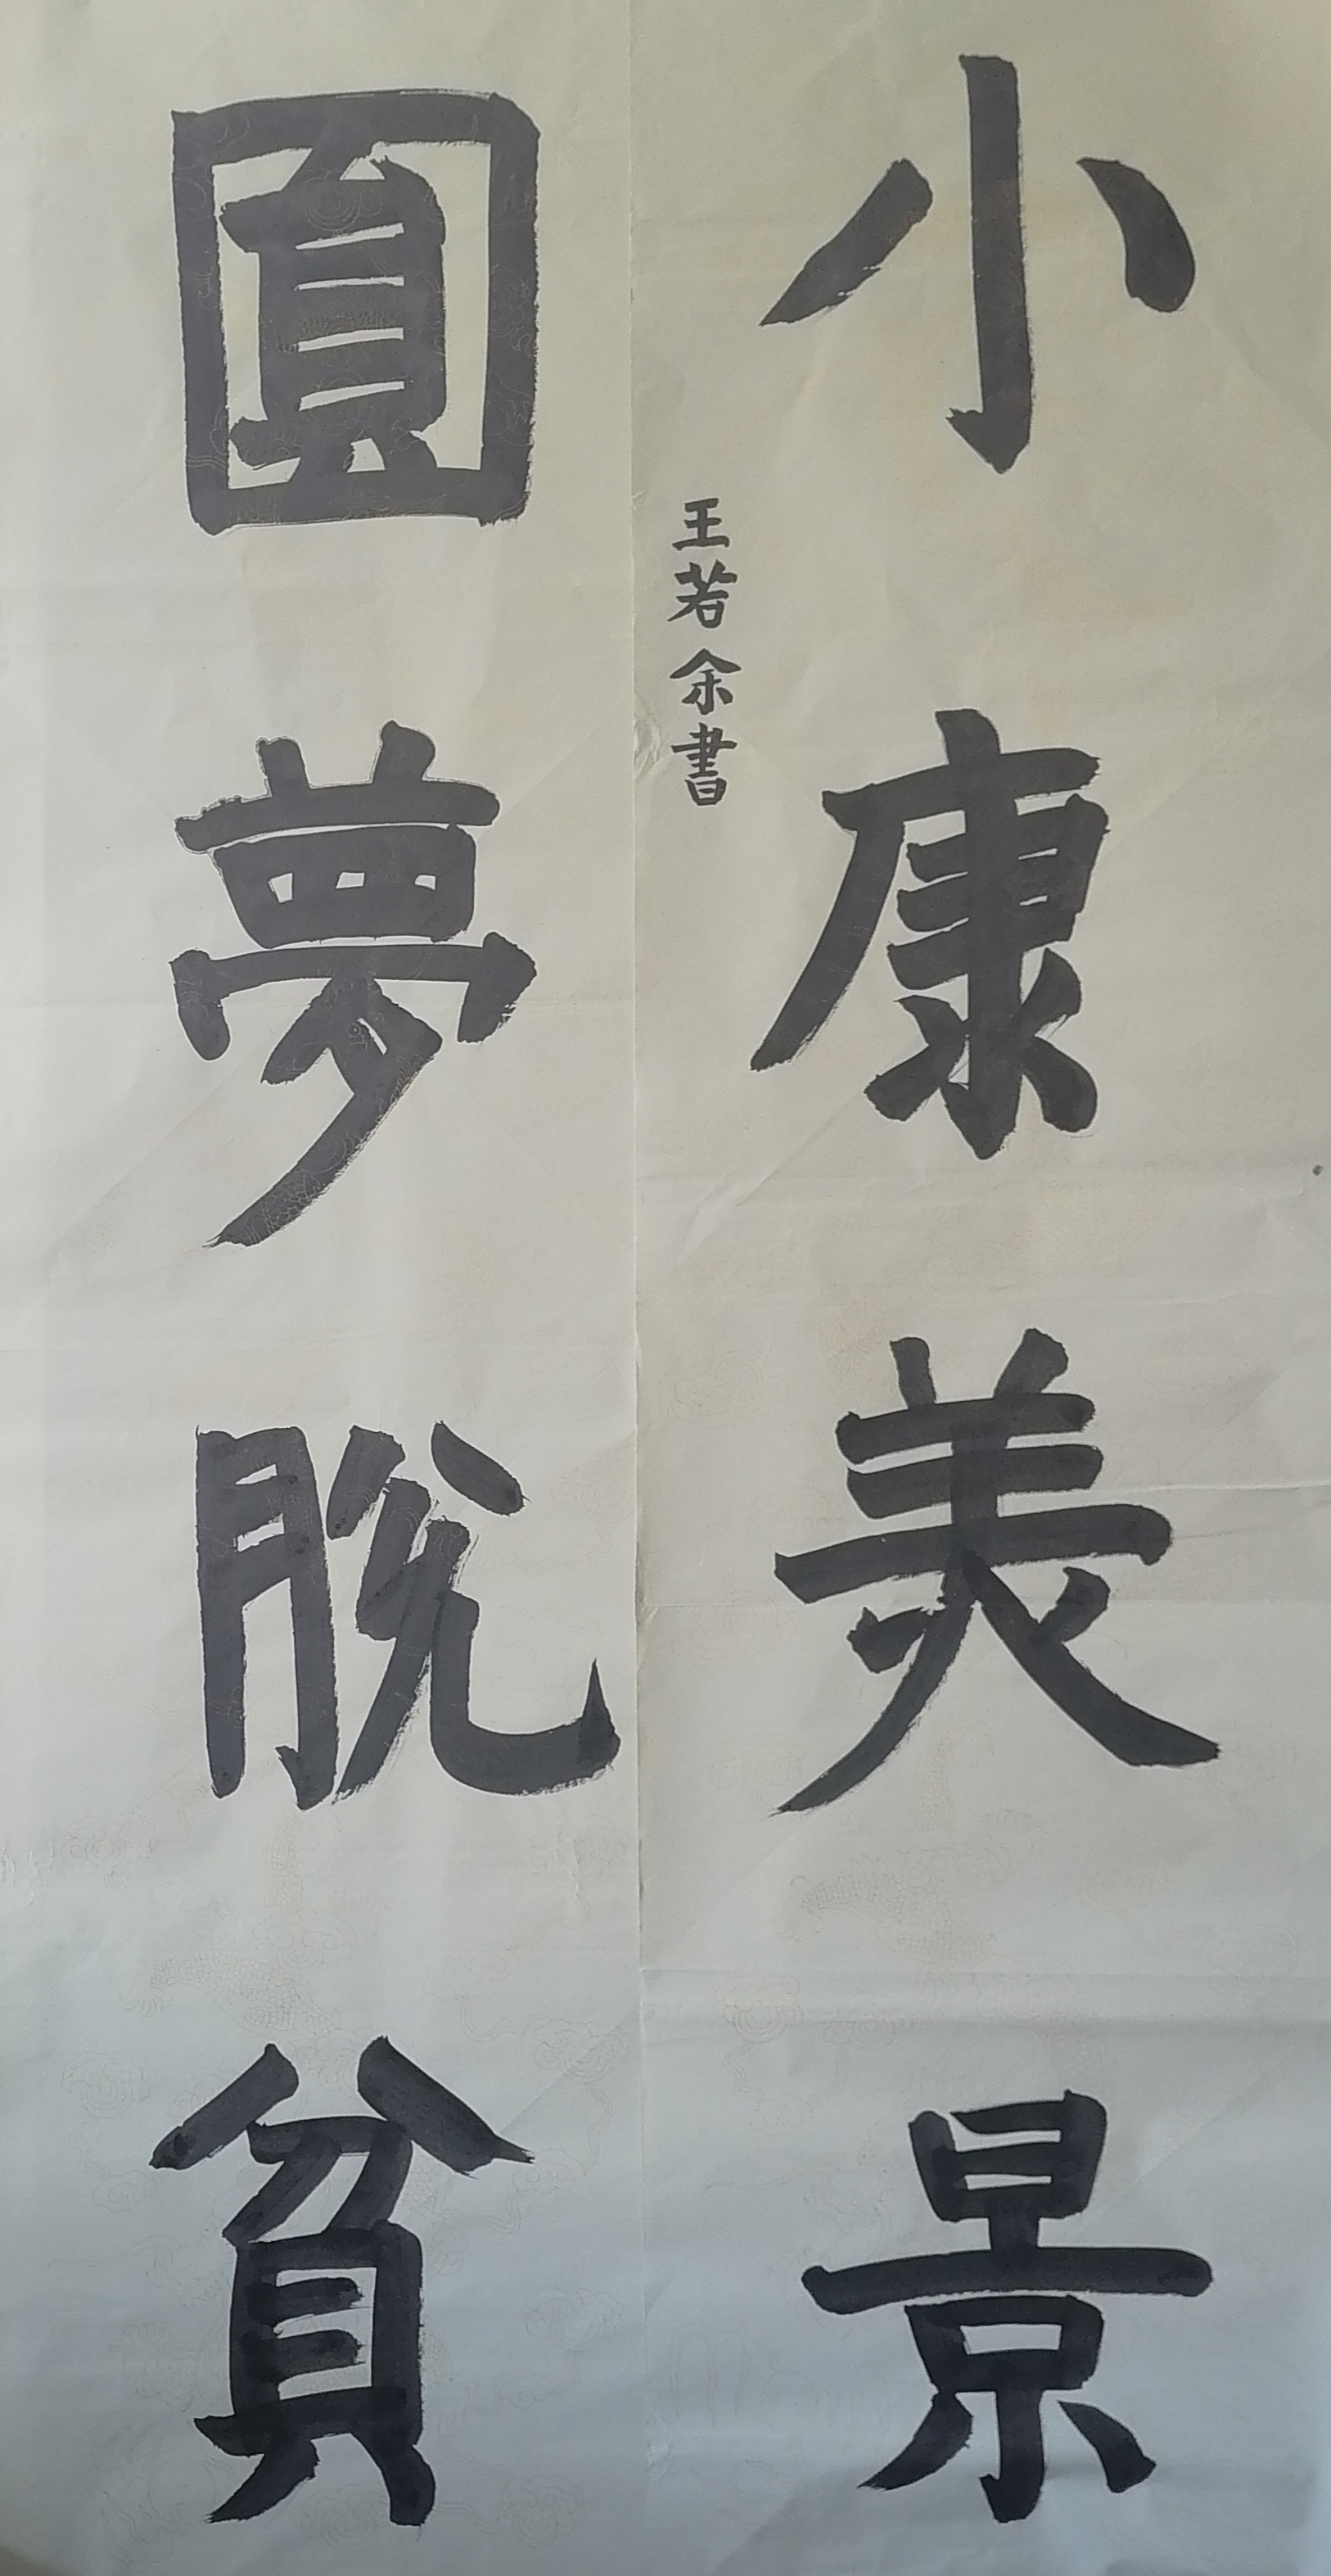 小康美景
王若余書
圓夢脫貧